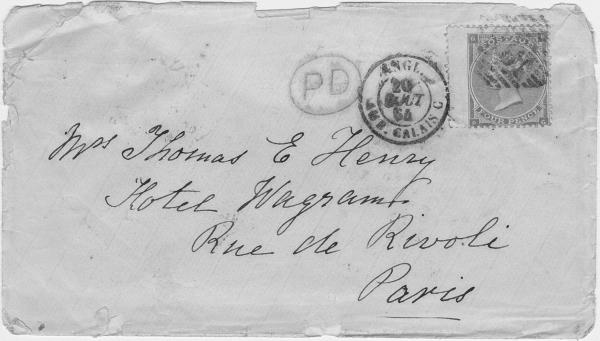 PD
ANGL
20
AOUT
64
AMB. CALAIS C
POSTAGE
FOUR PENCE
Mrs Thomas E Henry
Hotel Wagram
Rue de Rivoli
Paris